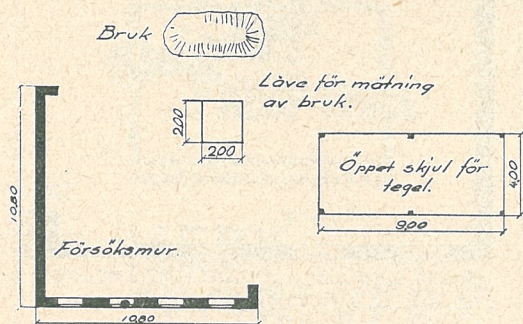 Bruk
Låve för mätning
av bruk.
2.00
2.00
Öppet skjul för
tegel.
4.00
9.00
10.80
Försöksmur.
10.80